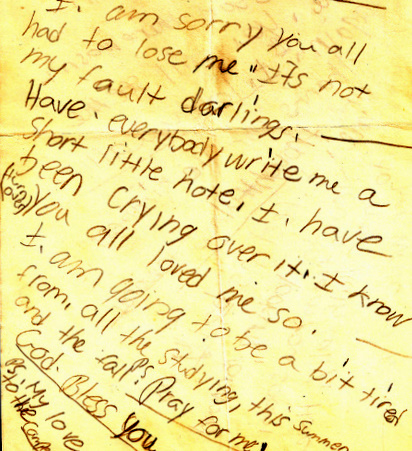 I. am sorry you all
had to lose me." ITs not
my fault darlings.
Have. everybody write me a
short little note. I. have
been crying over it. I know
(turn over)
you all loved me so.
I. am going to be a bit tired
from, all the studying, this summer
and the fall. Ps. Pray for me!
God. Bless you
Ps. My love
to the